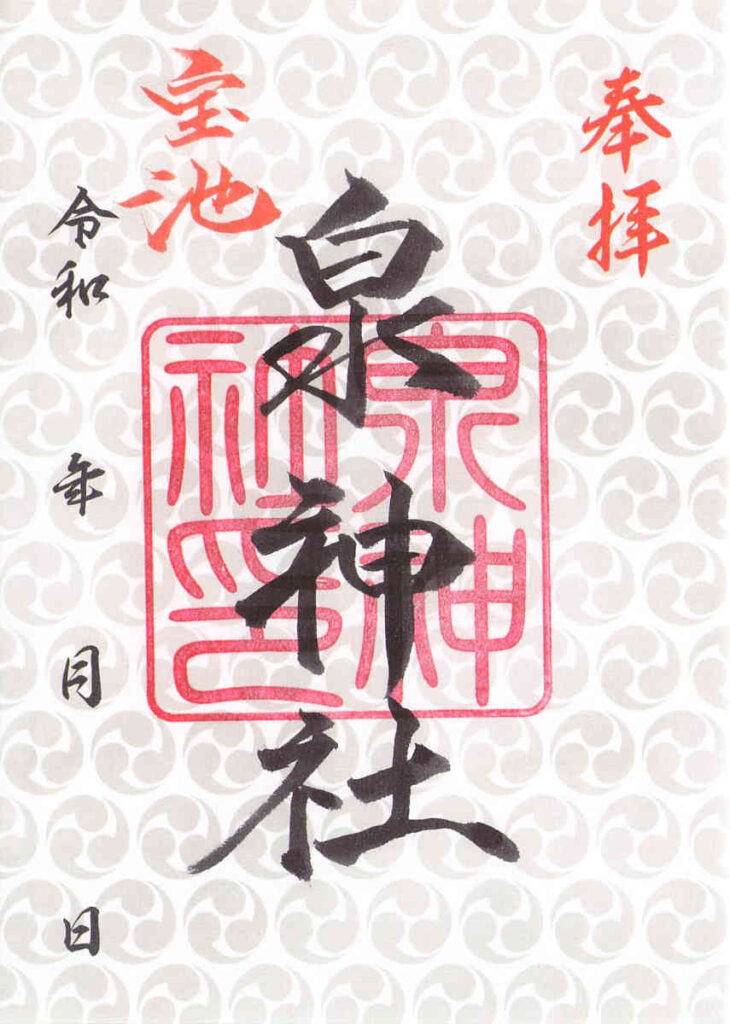 奉拝
泉神社
宝池
令和 年 月 日
泉神
社印